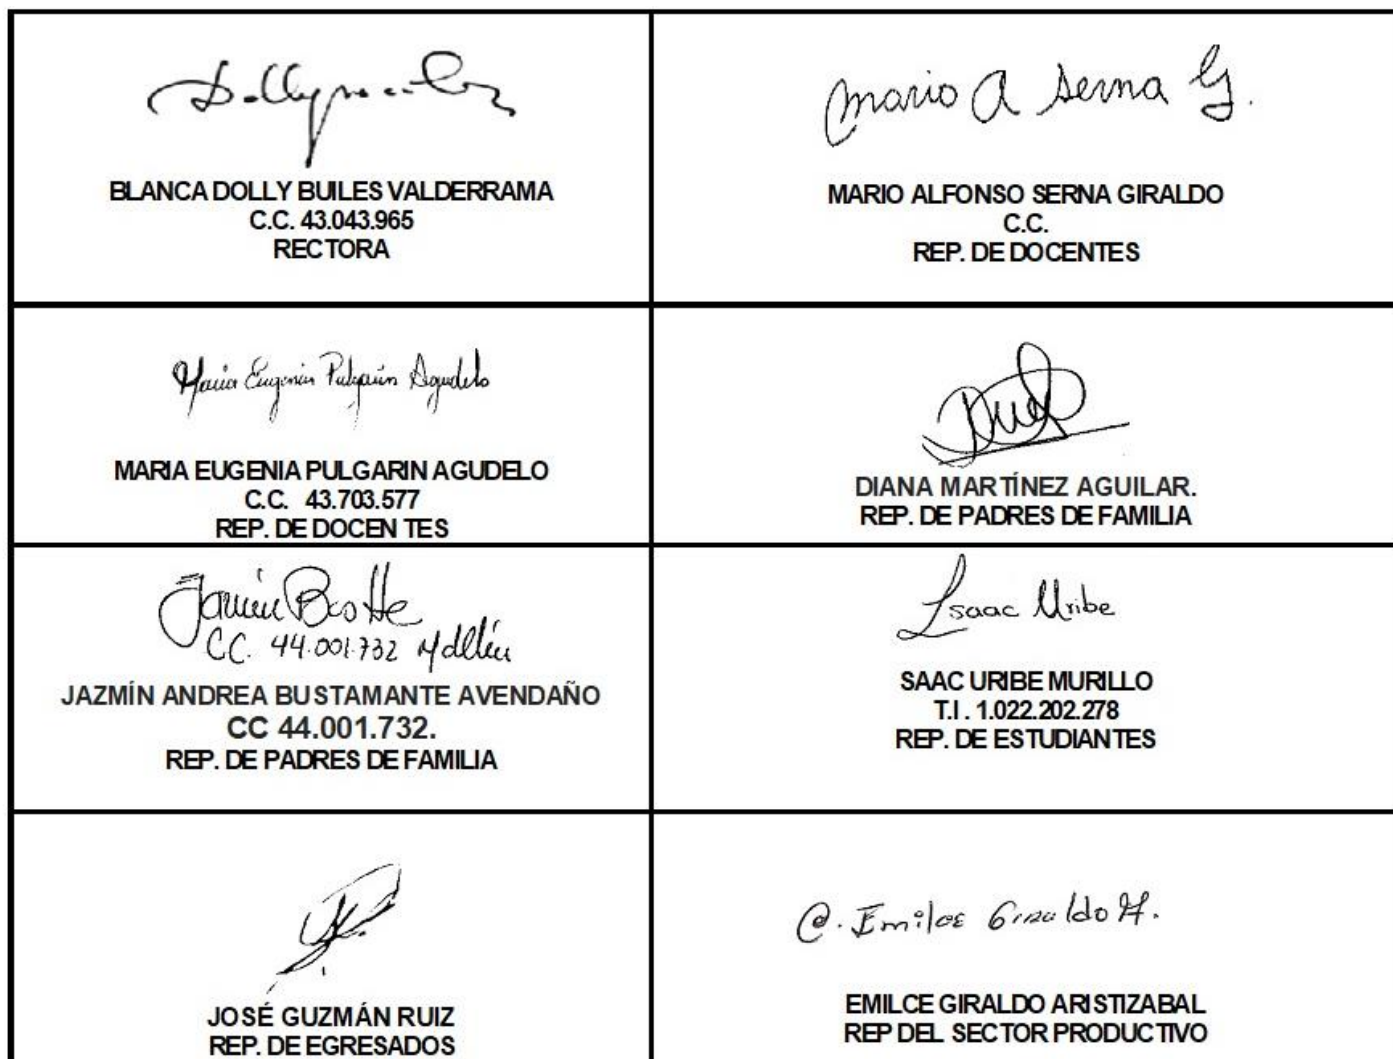 Mario A Serna G.
BLANCA DOLLY BUILES VALDERRAMA
C.C. 43.043.965
RECTORA
MARIO ALFONSO SERNA GIRALDO
C.C.
REP. DE DOCENTES
Maria Eugenia Pulgarin Agudelo
MARIA EUGENIA PULGARIN AGUDELO
C.C. 43.703.577
REP. DE DOCEN TES
DIANA MARTÍNEZ AGUILAR.
REP. DE PADRES DE FAMILIA
CC. 44.001.732
JAZMÍN ANDREA BUSTAMANTE AVENDAÑO
CC 44.001.732.
REP. DE PADRES DE FAMILIA
Isaac Uribe
SAAC URIBE MURILLO
T.I . 1.022.202.278
REP. DE ESTUDIANTES
JOSÉ GUZMÁN RUIZ
REP. DE EGRESADOS
Emilce Giraldo A.
EMILCE GIRALDO ARISTIZABAL
REP DEL SECTOR PRODUCTIVO